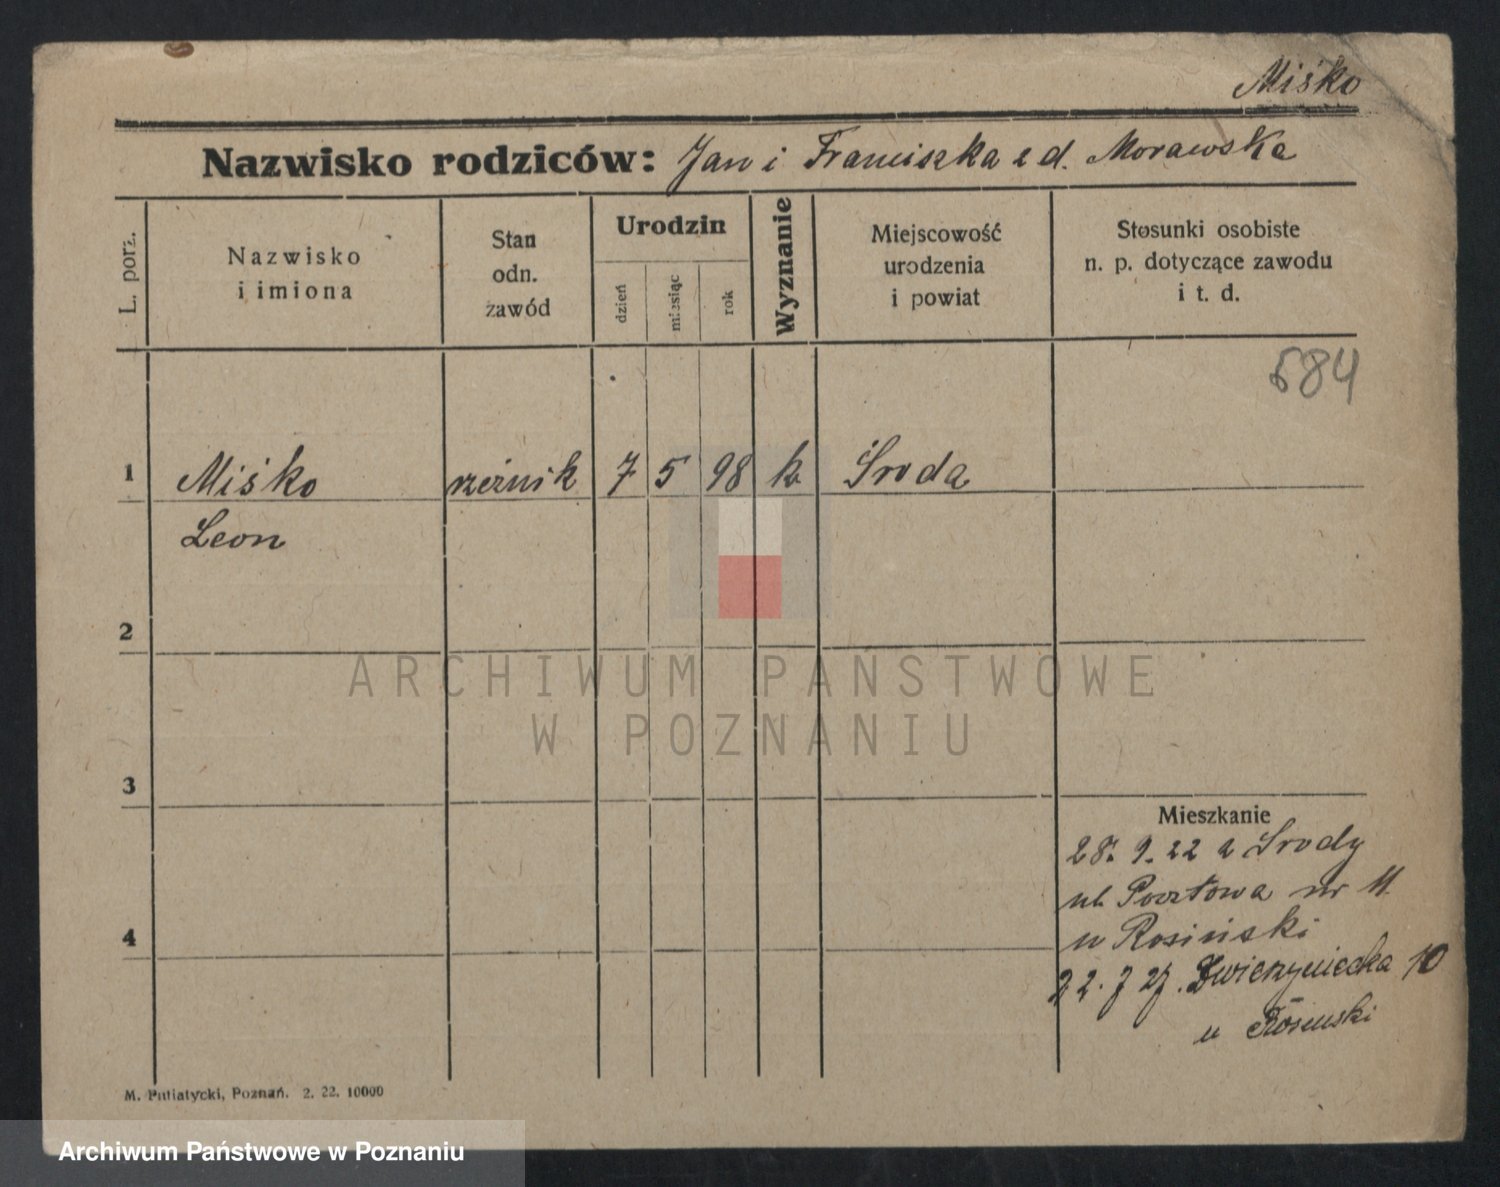 Miśko
Nazwisko rodziców: Jan i Franciszka z d. Morawska
L. porz.
Nazwisko
i imiona
Stan
odn.
zawód
Urodzin
dzień
miesiąc
rok
Wyznanie
Miejscowość
urodzenia
i powiat
Stosunki osobiste
n. p. dotyczące zawodu
i t. d.
684
1 Miśko rzeźnik 7 5 98 k Środa
Leon
2
3
4
Mieszkanie
28. 9. 22 z Środy
ul. Pocztowa nr 11.
u Rosiński
22. 7 27. Zwierzyniecka 10
u Rosinski
M. Putiatycki, Poznań. 2. 22. 10000
ARCHIWUM PAŃSTWOWE
W POZNANIU
Archiwum Państwowe w Poznaniu